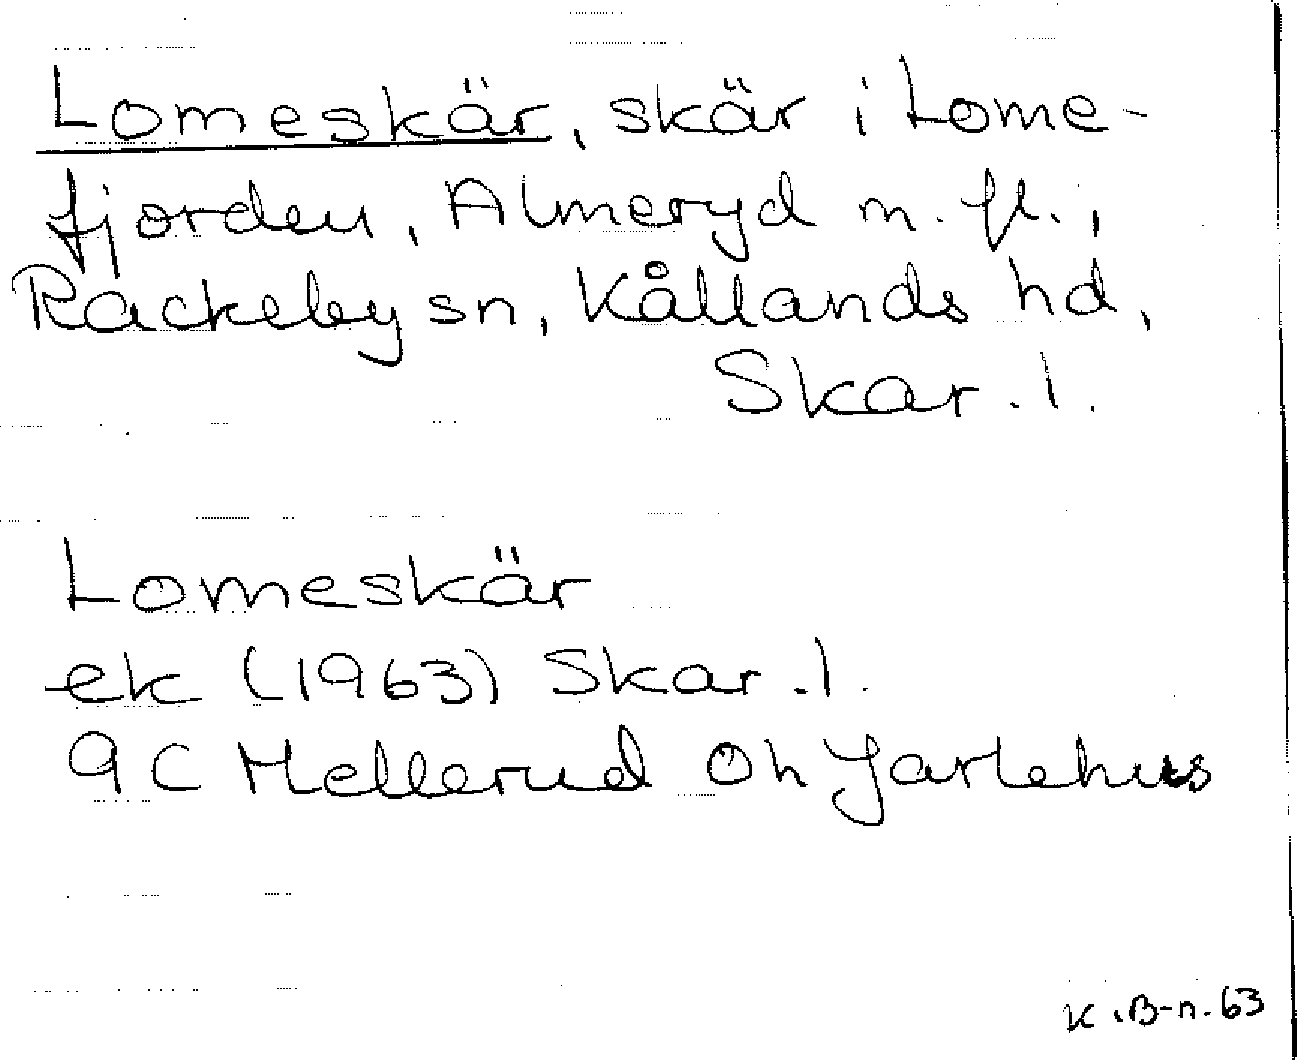 Lomeskär, skär i Lome-
fjorden, Almeryd m. fl.,
Rackeby sn, Kållands hd,
Skar. l.
Lomeskär
ek (1963) Skar. l.
9C Mellerud Oh Jarlehus
K.B-n. 63